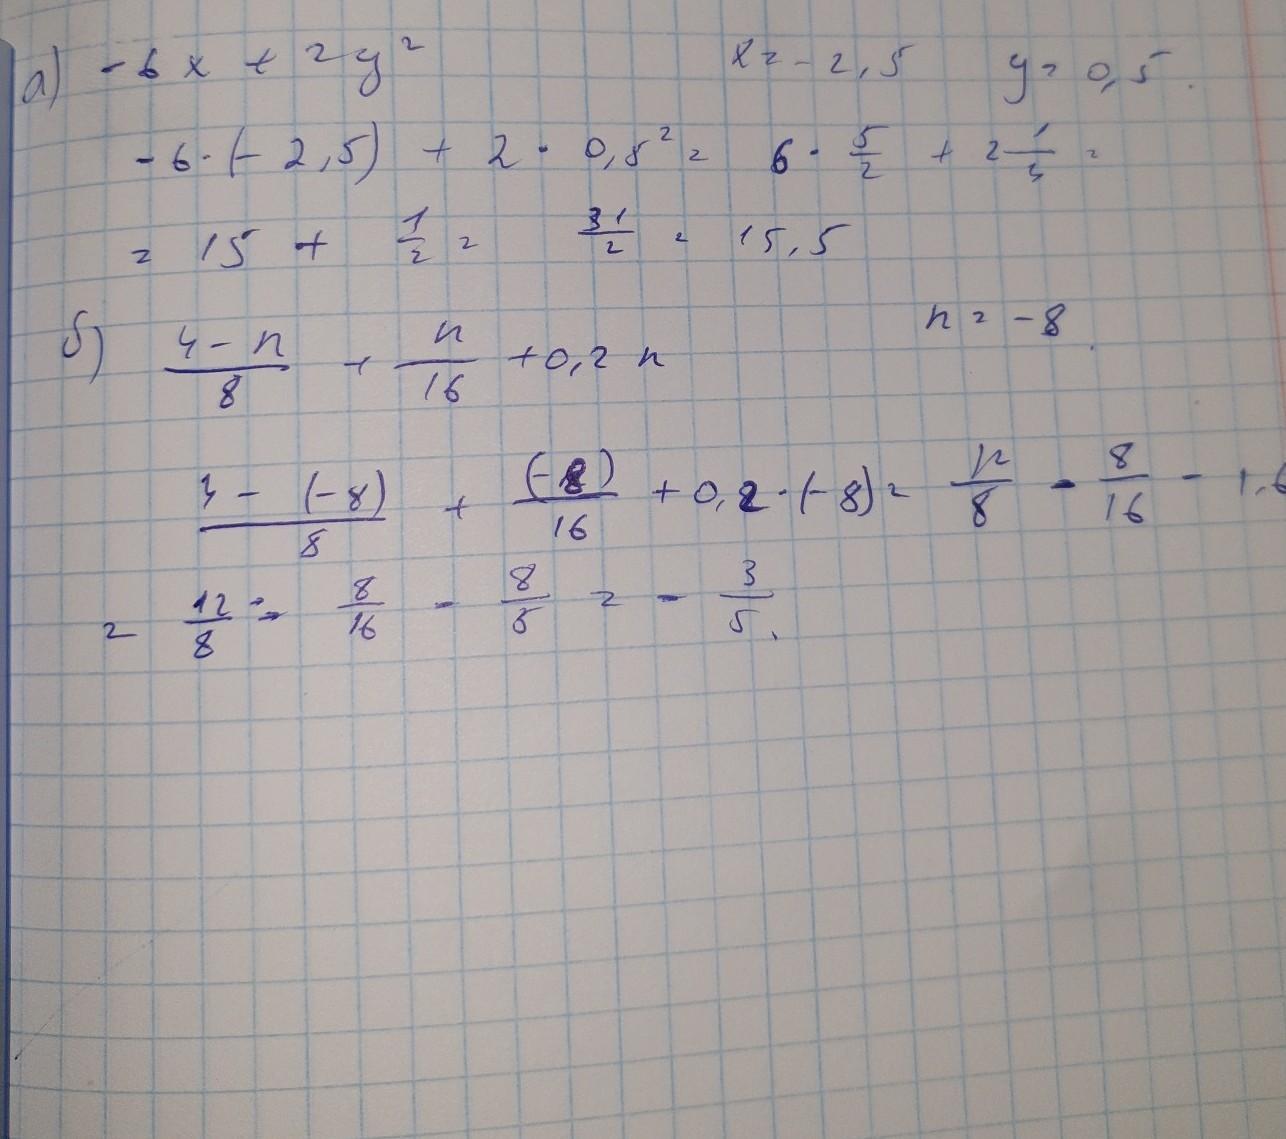 а) -6x + 2y² x = -2,5 y = 0,5.
-6·(-2,5) + 2·0,5² = 6·5/2 + 2 1/4 =
= 15 + 1/2 = 31/2 = 15,5
б) (4-n)/8 + n/16 + 0,2n n = -8.
(4-(-8))/8 + (-8)/16 + 0,2·(-8) = 12/8 - 8/16 - 1,6
= 12/8 - 8/16 - 8/5 = -3/5.